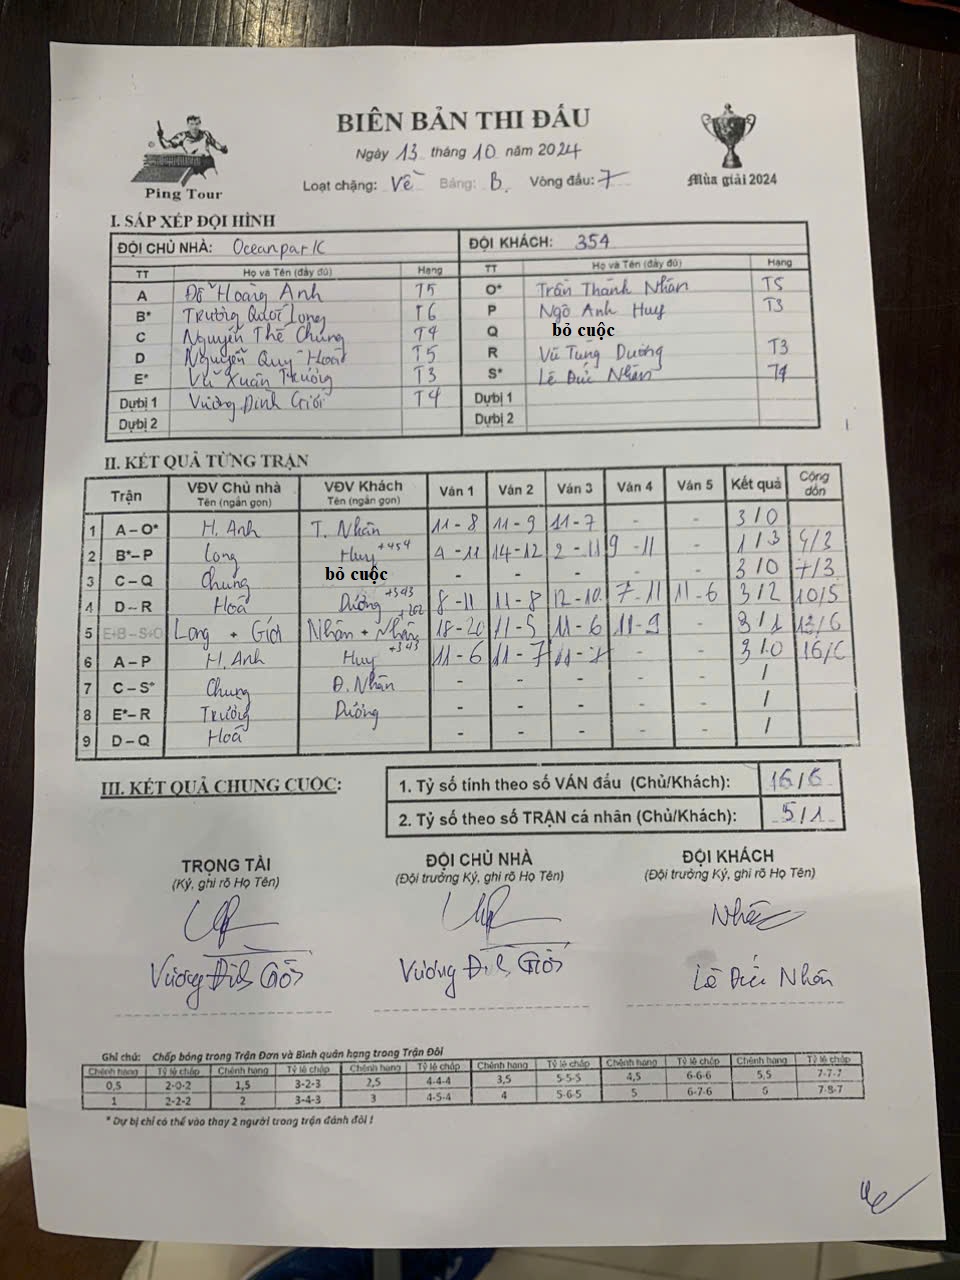 BIÊN BẢN THI ĐẤU
Ping Tour
Ngày 13 tháng 10 năm 2024
Loạt chặng: Về Bảng: B. Vòng đấu: 7
Mùa giải 2024
I. SẮP XẾP ĐỘI HÌNH
ĐỘI CHỦ NHÀ: Oceanpark ĐỘI KHÁCH: 354
TT Họ và Tên (đầy đủ) Hạng TT Họ và Tên (đầy đủ) Hạng
A Đỗ Hoàng Anh T5 O* Trần Thành Nhân T5
B* Trương Quốc Long T6 P Ngô Anh Huy T3
C Nguyễn Thế Chung T4 Q bỏ cuộc
D Nguyễn Quý Hoà T5 R Vũ Tùng Dương T3
E* Vũ Xuân Trường T3 S* Lê Đức Nhân T4
Dự bị 1 Vương Đình Giới T4 Dự bị 1
Dự bị 2 Dự bị 2
II. KẾT QUẢ TỪNG TRẬN
Trận VĐV Chủ nhà Tên (ngắn gọn) VĐV Khách Tên (ngắn gọn) Ván 1 Ván 2 Ván 3 Ván 4 Ván 5 Kết quả Cộng dồn
1 A – O* H. Anh T. Nhân 11 - 8 11 - 9 11 - 7 - - 3 / 0
2 B* – P Long Huy +454 4 - 11 14 - 12 2 - 11 9 - 11 - 1 / 3 4/3
3 C – Q Chung bỏ cuộc - - - - - 3 / 0 7/3
4 D – R Hoà Dương +343 8 - 11 11 - 8 12 - 10 7 - 11 11 - 6 3 / 2 10/5
5 E+B – S+O Long + Giới Nhân + Nhân +202 18 - 20 11 - 5 11 - 6 11 - 9 - 3 / 1 13/6
6 A – P H. Anh Huy +343 11 - 6 11 - 7 11 - - - 3 / 0 16/6
7 C – S* Chung Đ. Nhân - - - - - /
8 E* – R Trường Dương - - - - - /
9 D – Q Hoà - - - - - /
III. KẾT QUẢ CHUNG CUỘC:
1. Tỷ số tính theo số VÁN đấu (Chủ/Khách): 16 / 6
2. Tỷ số theo số TRẬN cá nhân (Chủ/Khách): 5 / 1
TRỌNG TÀI ĐỘI CHỦ NHÀ ĐỘI KHÁCH
(Ký, ghi rõ Họ Tên) (Đội trưởng Ký, ghi rõ Họ Tên) (Đội trưởng Ký, ghi rõ Họ Tên)
Nhân
Vương Đình Giới Vương Đình Giới Lê Đức Nhân
Ghi chú: Chấp bóng trong Trận Đơn và Bình quân hạng trong Trận Đôi
Chênh hạng Tỷ lệ chấp Chênh hạng Tỷ lệ chấp Chênh hạng Tỷ lệ chấp Chênh hạng Tỷ lệ chấp Chênh hạng Tỷ lệ chấp Chênh hạng Tỷ lệ chấp
0,5 2-0-2 1,5 3-2-3 2,5 4-4-4 3,5 5-5-5 4,5 6-6-6 5,5 7-7-7
1 2-2-2 2 3-4-3 3 4-5-4 4 5-6-5 5 6-7-6 6 7-8-7
* Dự bị chỉ có thể vào thay 2 người trong trận đánh đôi !